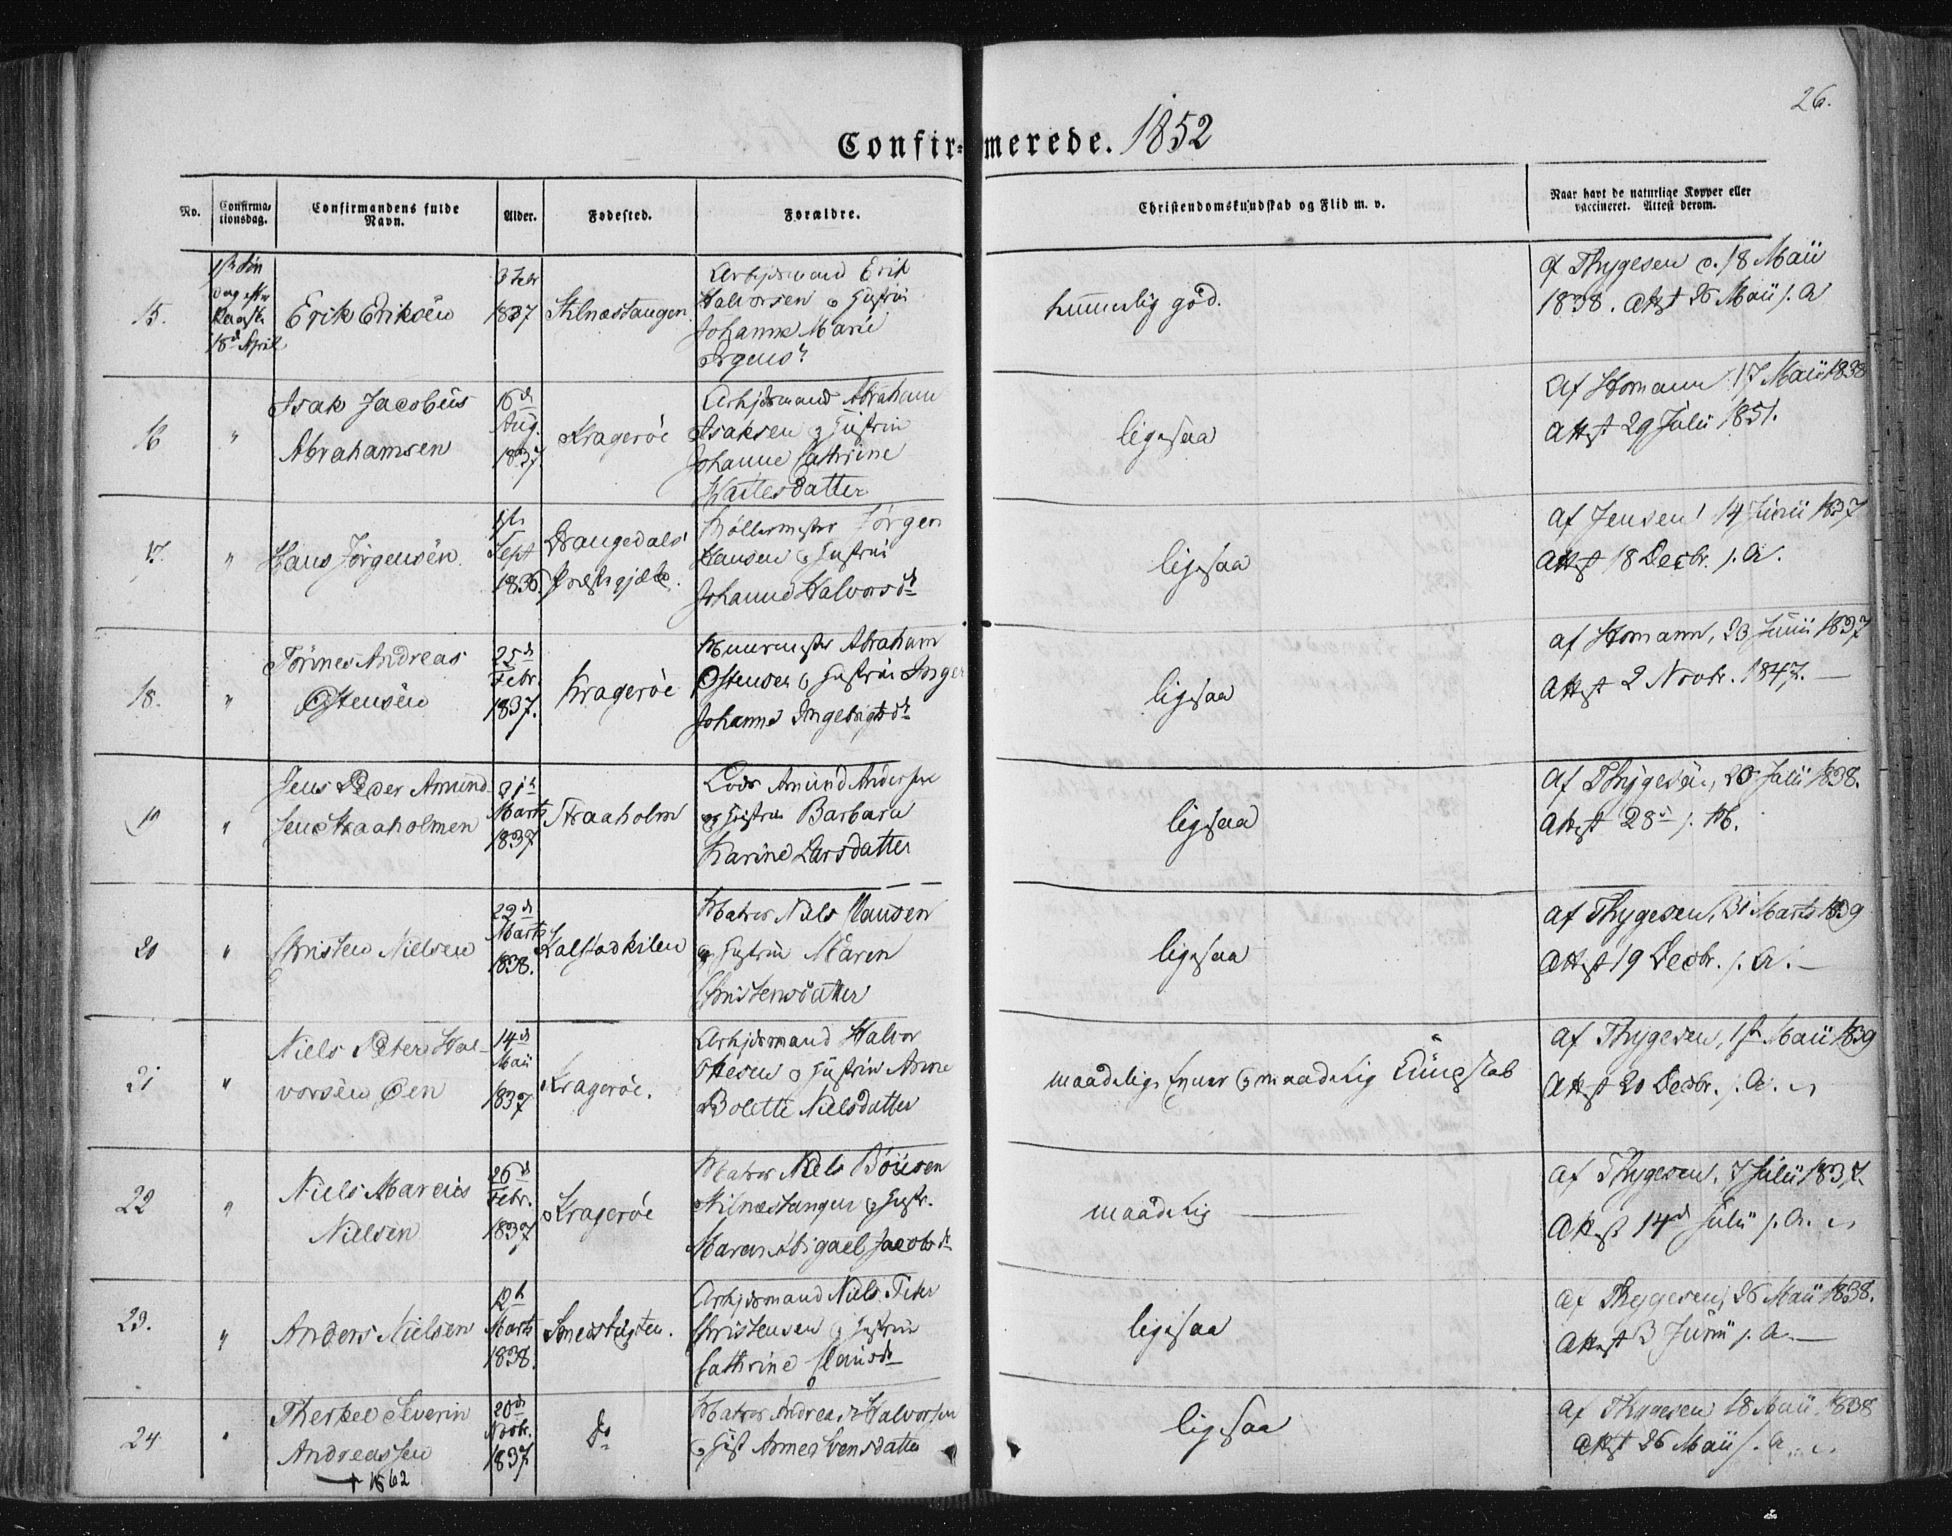 26.
Confirmerede. 1852
No.
Confirmationsdag.
Confirmandens fulde Navn.
Alder.
Fødested.
Forældre.
Christendomskundskab og Flid m. v.
Naar havt de naturlige Kopper eller vaccineret. Attest derom.
15.
18d April
Erik Eriksen
3 Febr
1837
Stilnæstangen
Arbjdsmand Erik
Halvorsen og Hustru
Johanne Marie
temmelig god.
af Thygesen d. 18 Maii
1838. Attest 26 Maii s. A
16
"
Isak Jacobus
Abrahamsen
16d
Aug.
1837
Kragerøe
Arbjdsmand Abraham
Isaksen og Hustru
Johanne Cathrine
ligesaa
af Homann 17 Maii 1838
Attest 29 Julii 1851.
17.
"
Hans Jørgensen
Sept
1836
Drangedals
Præstegjeld.
Møllermester Jørgen
Hansen og Hustru
Johanne Halvorsdr
ligesaa
af Jensen 14 Junii 1837
Attest 18 Decbr. s. A.
18.
"
Tørines Andreas
Ostensen
25d
Febr.
1837.
Kragerøe
Muurmester Abraham
Ostensen og Hustru Inger
Johanne Ingebrigtsdr
ligesaa
af Homann, 23 Junii 1837
Attest 2 Novbr. 1847. —
19
"
Jens Peder Amund-
sen Straaholmen
Marts
1837
Straaholm
Lods Amund Andersen
og Hustru Barbara
Karine Larsdatter
ligesaa
af Thygesen, 20 Julii 1838.
Attest 28d s. M.
20
"
Christen Nielsen
22d
Marts
1838.
Kalstadkilen
Matros Niels Clausen
og Hustru Maren
Christensdatter
ligesaa
af Thygesen, 31 Marts 1839
Attest 19 Decbr. s. A. —
21
"
Niels Peter Hal-
vorsen Øen
14d
Maii
1837
Kragerøe.
Arbjdsmand Halvor
Ottesen og Hustru Anne
Bolette Nielsdatter
maadelige Evner og maadelig Kundskab
af Thygesen, 1ste Maii 1839
Attest 20 Decbr. s. A.
22
"
Niels Marcus
Nielsen
26d
Febr.
1837
Kragerøe
Matros Niels Boüsen
Stilnæstangen og Hustr.
Maren Abigael Jacobsdr
maadelig —
af Thygesen, 7 Julii 1837.
Attest 14d Julii s. A.
23.
"
Anders Nielsen
12te
Marts
1838.
Smedsbugten.
Arbjdsmand Niels Peter
Christensen og Hustru
Cathrine Clausdr
ligesaa
af Thygesen, 26 Maii 1838.
Attest 3 Junii s. A. —
24
"
Therkel Severin
Andreassen
+ 1862
20d
Novbr.
1837
Do
Matros Andreas Halvorsen
og Hust Anne Svensdatter
ligesaa
af Thygesen 18 Maii 1838
Attest 26 Maii s. A.